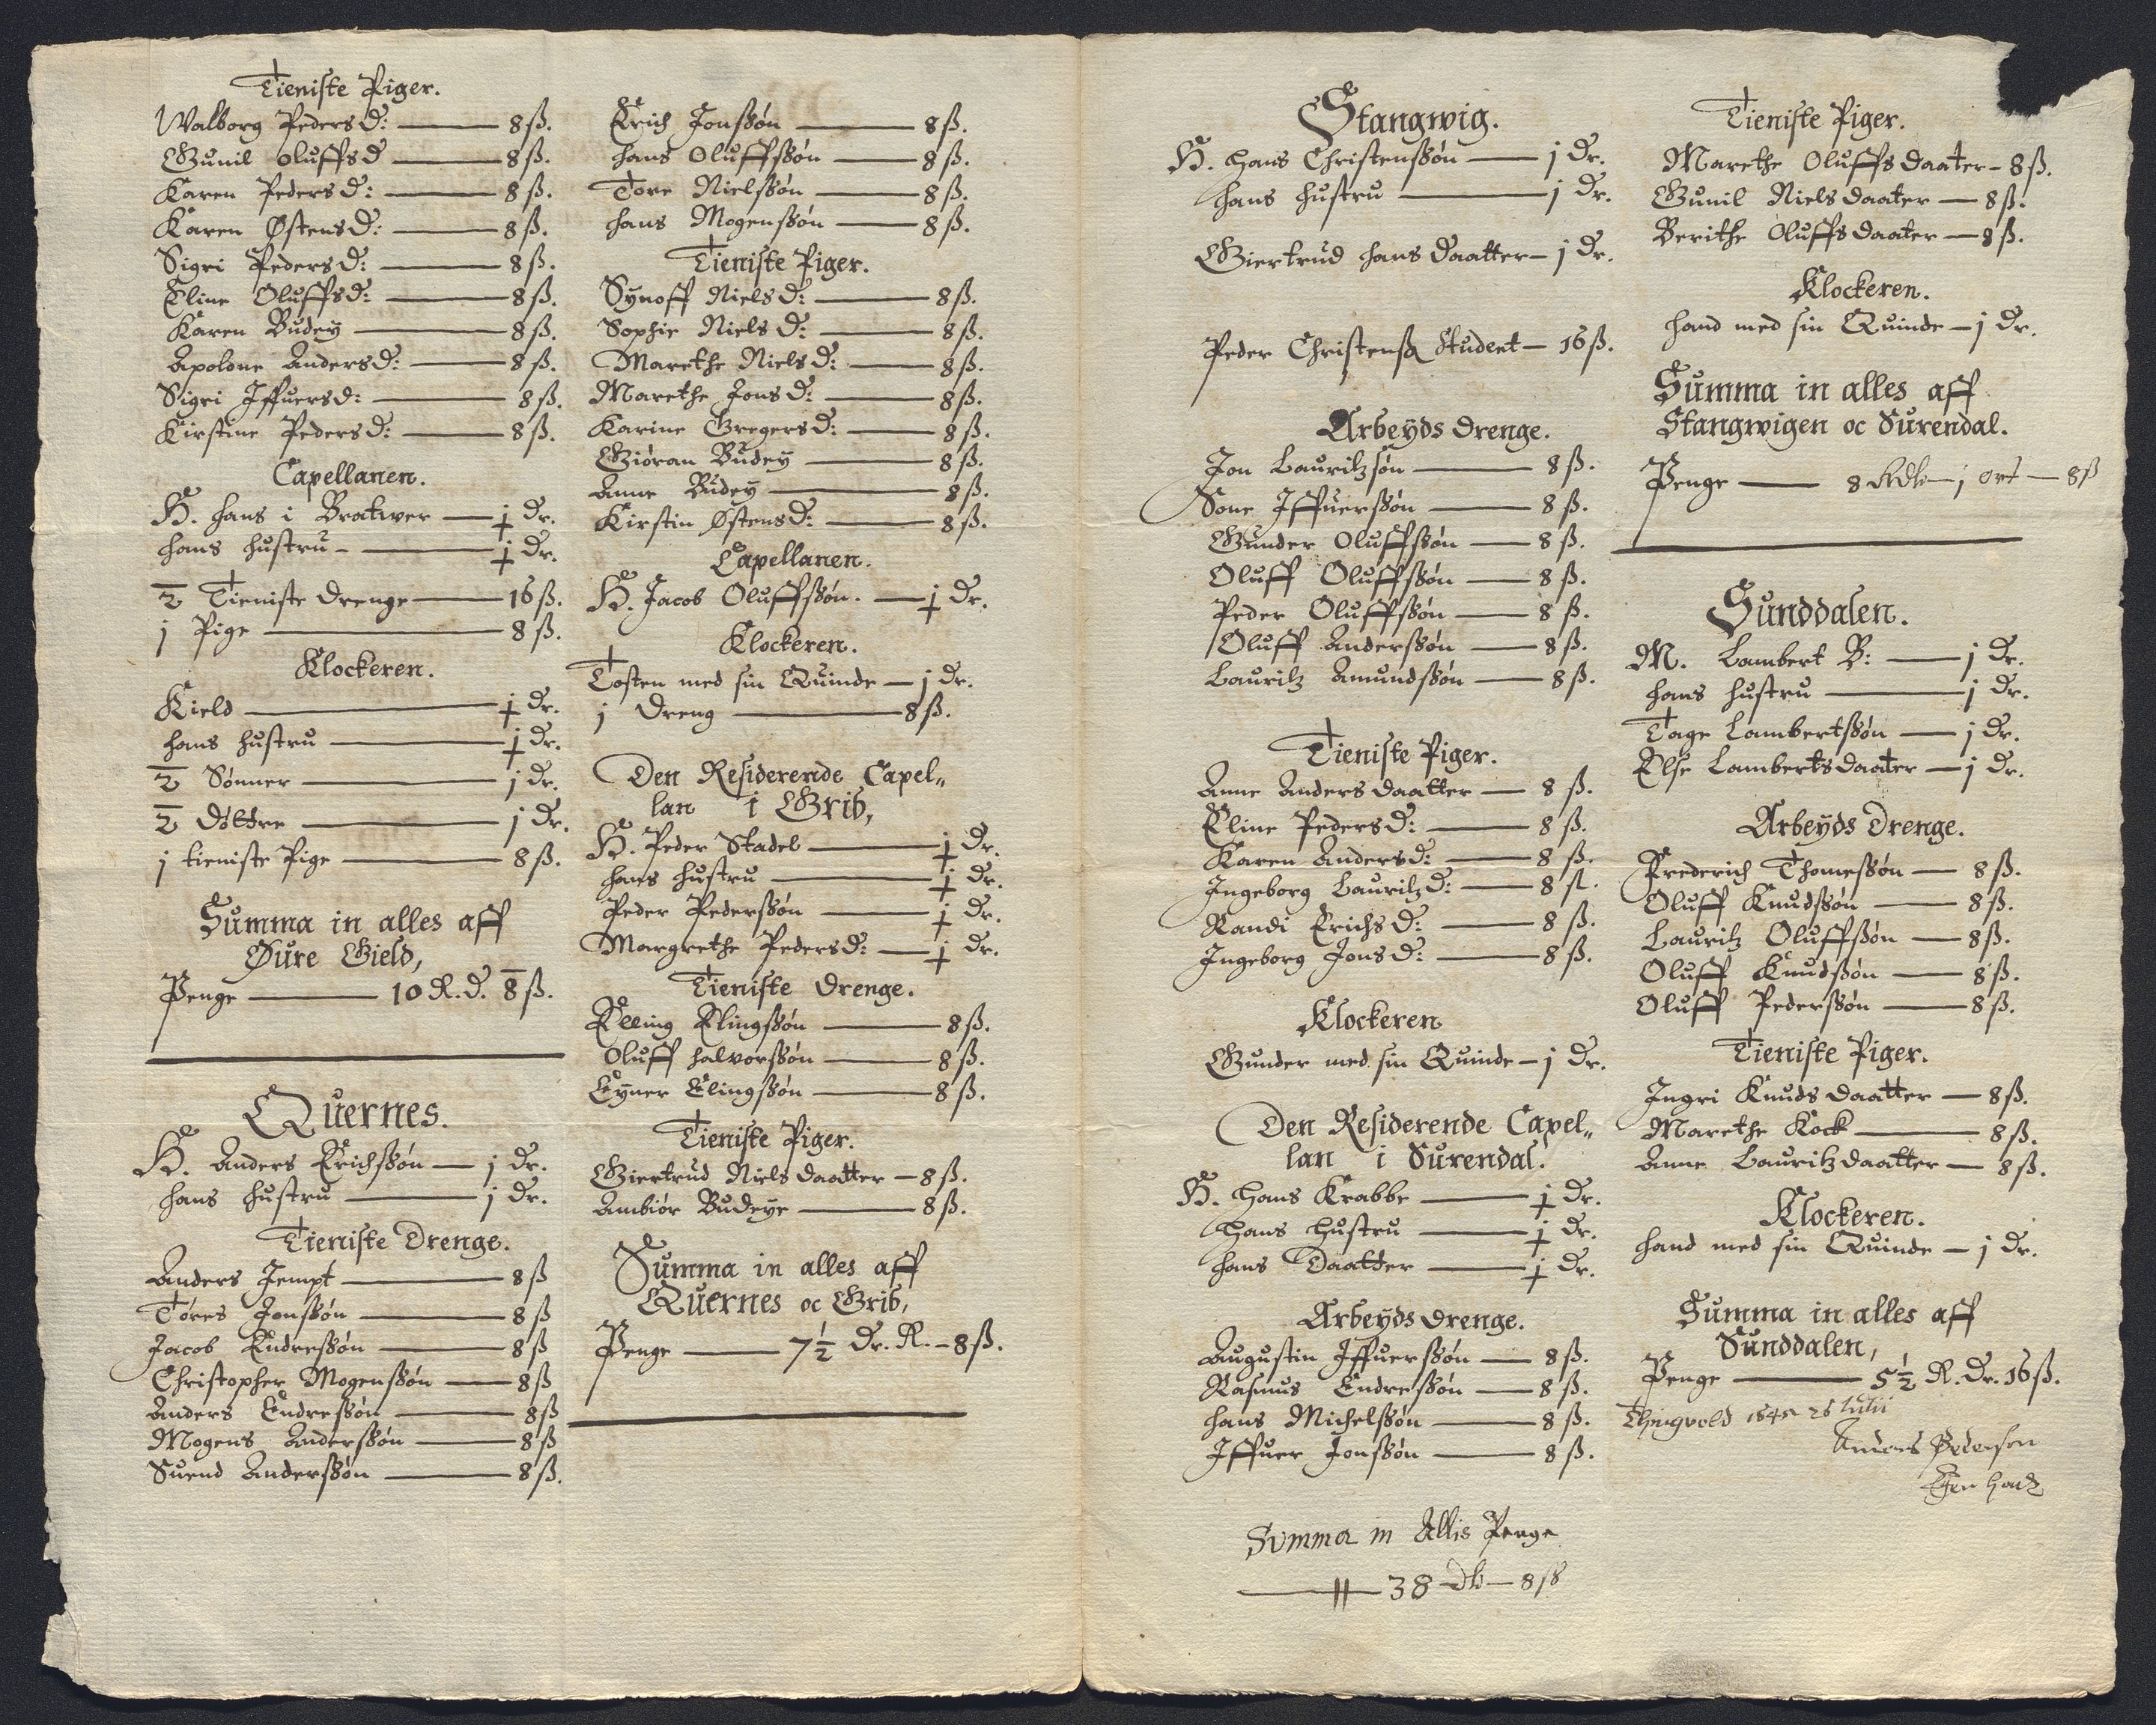 Tieniste Piger.
Walborg Peders D: — 8 ß.
Gunil Oluffs D — 8 ß.
Karen Peders D: — 8 ß.
Karen Østens D: — 8 ß.
Sigri Peders D: — 8 ß.
Eline Oluffs D: — 8 ß.
Karen Budey — 8 ß.
Apolone Anders D: — 8 ß.
Sigri Iffuers D: — 8 ß.
Kirstine Peders D: — 8 ß.
Capellanen.
H. Hans i Bratwer — j Dr.
hans hustru — j Dr.
2 Tieniste Drenge — 16 ß.
j Pige — 8 ß.
Klockeren.
Kield — j Dr.
hans hustru — j Dr.
2 Sønner — j Dr.
2 Døttre — j Dr.
j tieniste Pige — 8 ß.
Summa in alles aff
Øure Gield,
Penge — 10 R. D. 8 ß.
Quernes.
H. Anders Erichssøn — j Dr.
hans hustru — j Dr.
Tieniste Drenge.
Anders Jempt — 8 ß
Tøres Jonssøn — 8 ß
Jacob Endressøn — 8 ß
Christopher Mogenssøn — 8 ß
Anders Endressøn — 8 ß
Mogens Anderssøn — 8 ß
Suend Anderssøn — 8 ß.
Erich Jonssøn — 8 ß.
Hans Oluffssøn — 8 ß.
Tore Nielssøn — 8 ß.
Hans Mogenssøn — 8 ß.
Tieniste Piger.
Synoff Niels D: — 8 ß.
Sophie Niels D: — 8 ß.
Marethe Niels D: — 8 ß.
Marethe Jons D: — 8 ß.
Karine Gregers D: — 8 ß.
Giøran Budey — 8 ß.
Anne Budey — 8 ß.
Kirstin Østens D: — 8 ß.
Capellanen.
H. Jacob Oluffssøn. — j Dr.
Klockeren.
Tosten med sin Quinde — j Dr.
j Dreng — 8 ß.
Den Residerende Capel„
lan i Grib,
H. Peder Stadel — j Dr.
hans hustru — j Dr.
Peder Pederssøn — j Dr.
Margrethe Peders D: — j Dr.
Tieniste Drenge.
Elling Elingssøn — 8 ß.
Oluff Halvorssøn — 8 ß.
Eyner Elingssøn — 8 ß.
Tieniste Piger.
Giertrud Niels Daatter — 8 ß.
Ambiør Budeye — 8 ß.
Summa in alles aff
Quernes oc Grib,
Penge — 7½ Dr. R. — 8 ß.
Stangwig.
H. Hans Christenssøn — j Dr.
hans hustru — j Dr.
Giertrud Hans Daatter — j Dr.
Peder Christenss Student — 16 ß.
Arbeyds Drenge.
Jon Lauritzsøn — 8 ß.
Sone Iffuerssøn — 8 ß.
Gunder Oluffssøn — 8 ß.
Oluff Oluffssøn — 8 ß.
Peder Oluffssøn — 8 ß.
Oluff Anderssøn — 8 ß.
Lauritz Amundssøn — 8 ß.
Tieniste Piger.
Anne Anders Daatter — 8 ß.
Eline Peders D: — 8 ß.
Karen Anders D: — 8 ß.
Ingeborg Lauritz D: — 8 ß.
Randi Erichs D: — 8 ß.
Ingeborg Jons D: — 8 ß.
Klockeren
Gunder med sin Quinde — j Dr.
Den Residerende Capel„
lan i Surendal.
H. Hans Krabbe — j Dr.
Hans hustru — j Dr.
hans Daatter — j Dr.
Arbeyds Drenge.
Augustin Iffuerssøn — 8 ß.
Rasmus Endressøn — 8 ß.
Hans Michelssøn — 8 ß.
Iffuer Jonssøn — 8 ß.
Summa in Allis Penge
— 38 dlr — 8 ß
Tieniste Piger.
Marethe Oluffs Daater — 8 ß.
Gunil Niels Daater — 8 ß.
Berithe Oluffs Daater — 8 ß.
Klockeren.
Hand med sin Quinde — j Dr.
Summa in alles aff
Stangwigen oc Surendal.
Penge — 8 Rdlr — j ort — 8 ß
Sunddalen.
M. Lambert B: — j Dr.
hans hustru — j Dr.
Tage Lambertssøn — j Dr.
Else Lamberts Daater — j Dr.
Arbeyds Drenge.
Frederich Thomessøn — 8 ß.
Oluff Knudssøn — 8 ß.
Lauritz Oluffssøn — 8 ß.
Oluff Knudssøn — 8 ß.
Oluff Pederssøn — 8 ß.
Tieniste Piger.
Ingri Knuds Daatter — 8 ß.
Marethe Kock — 8 ß.
Anne Lauritz Daatter — 8 ß.
Klockeren.
Hand med sin Quinde — j Dr.
Summa in alles aff
Sunddalen,
Penge — 5½ R. Dr. 16 ß.
Thingvold 26 Julii
Anders Pederson
Egen Hand